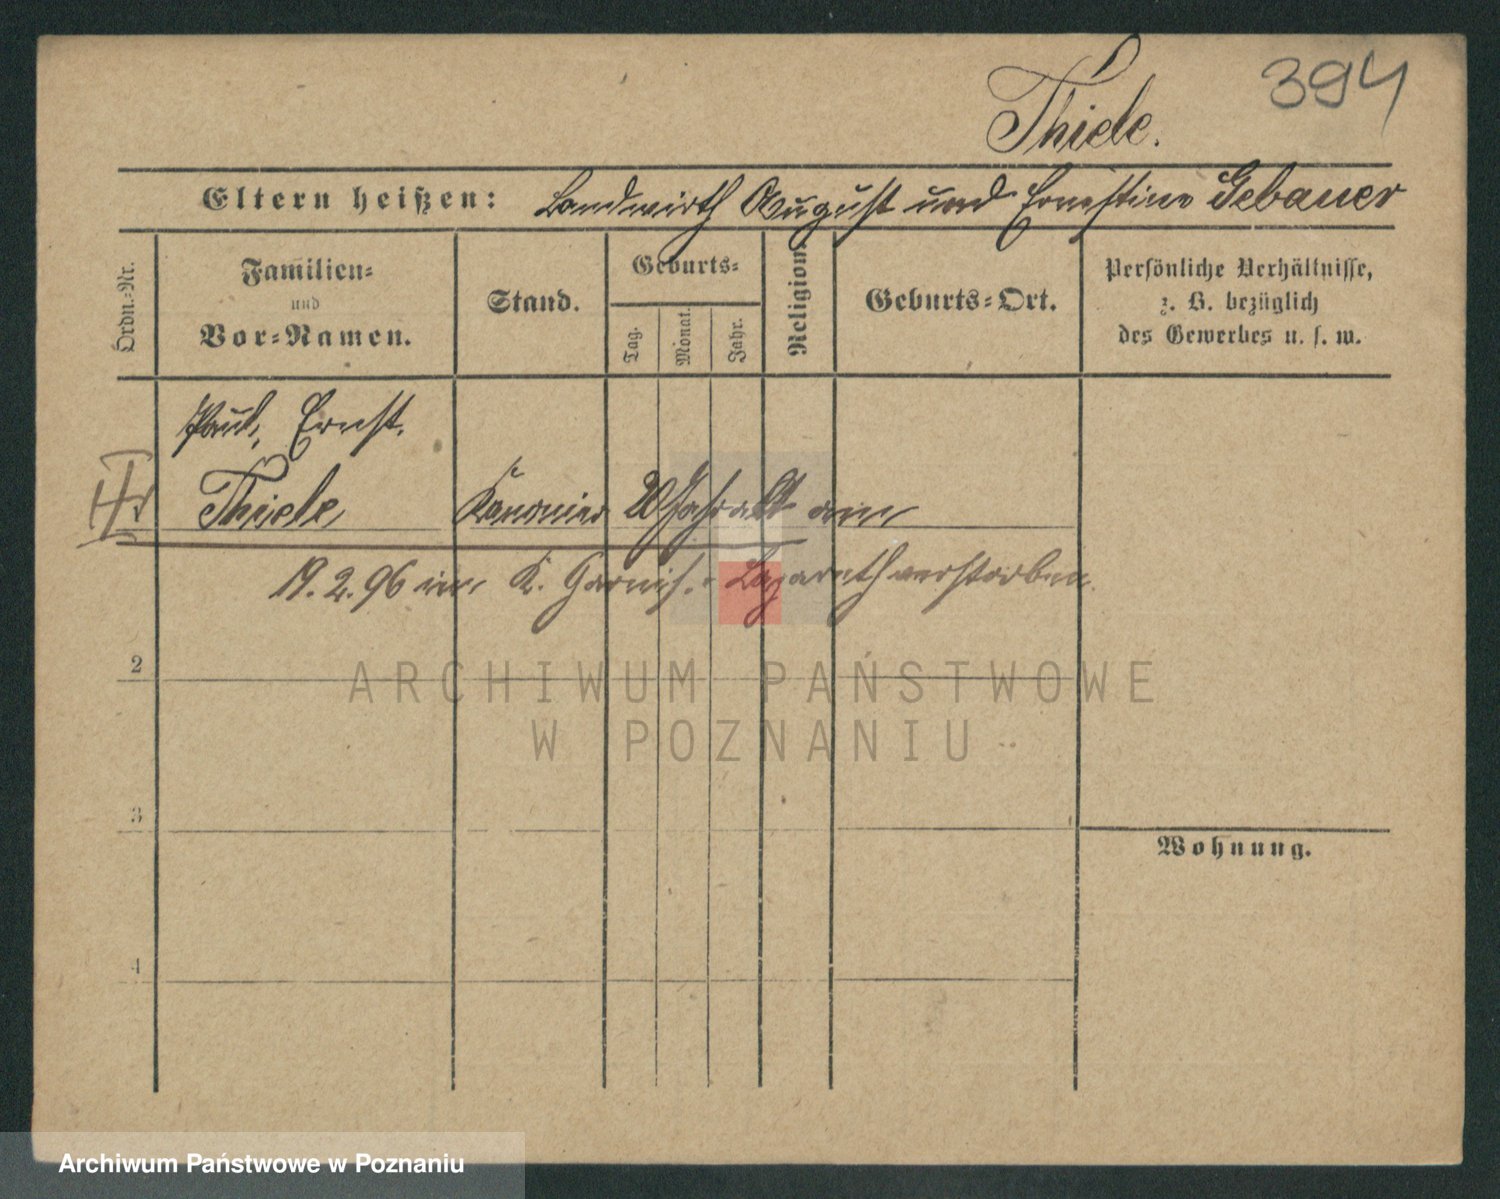 394
Thiele.
Eltern heißen: Landwirth August und Ernestine Gebauer
Ordn.=Nr.
Familien=
und
Vor=Namen.
Stand.
Geburts=
Tag.
Monat.
Jahr.
Religion.
Geburts=Ort.
Persönliche Verhältnisse,
z. B. bezüglich
des Gewerbes u. s. w.
Paul, Ernst.
Thiele Kanonier 20 Jahr alt am
19. 2. 96 im K. Garnis. Lazareth verstorben.
2
ARCHIWUM PAŃSTWOWE
W POZNANIU
3
Wohnung.
4
Archiwum Państwowe w Poznaniu